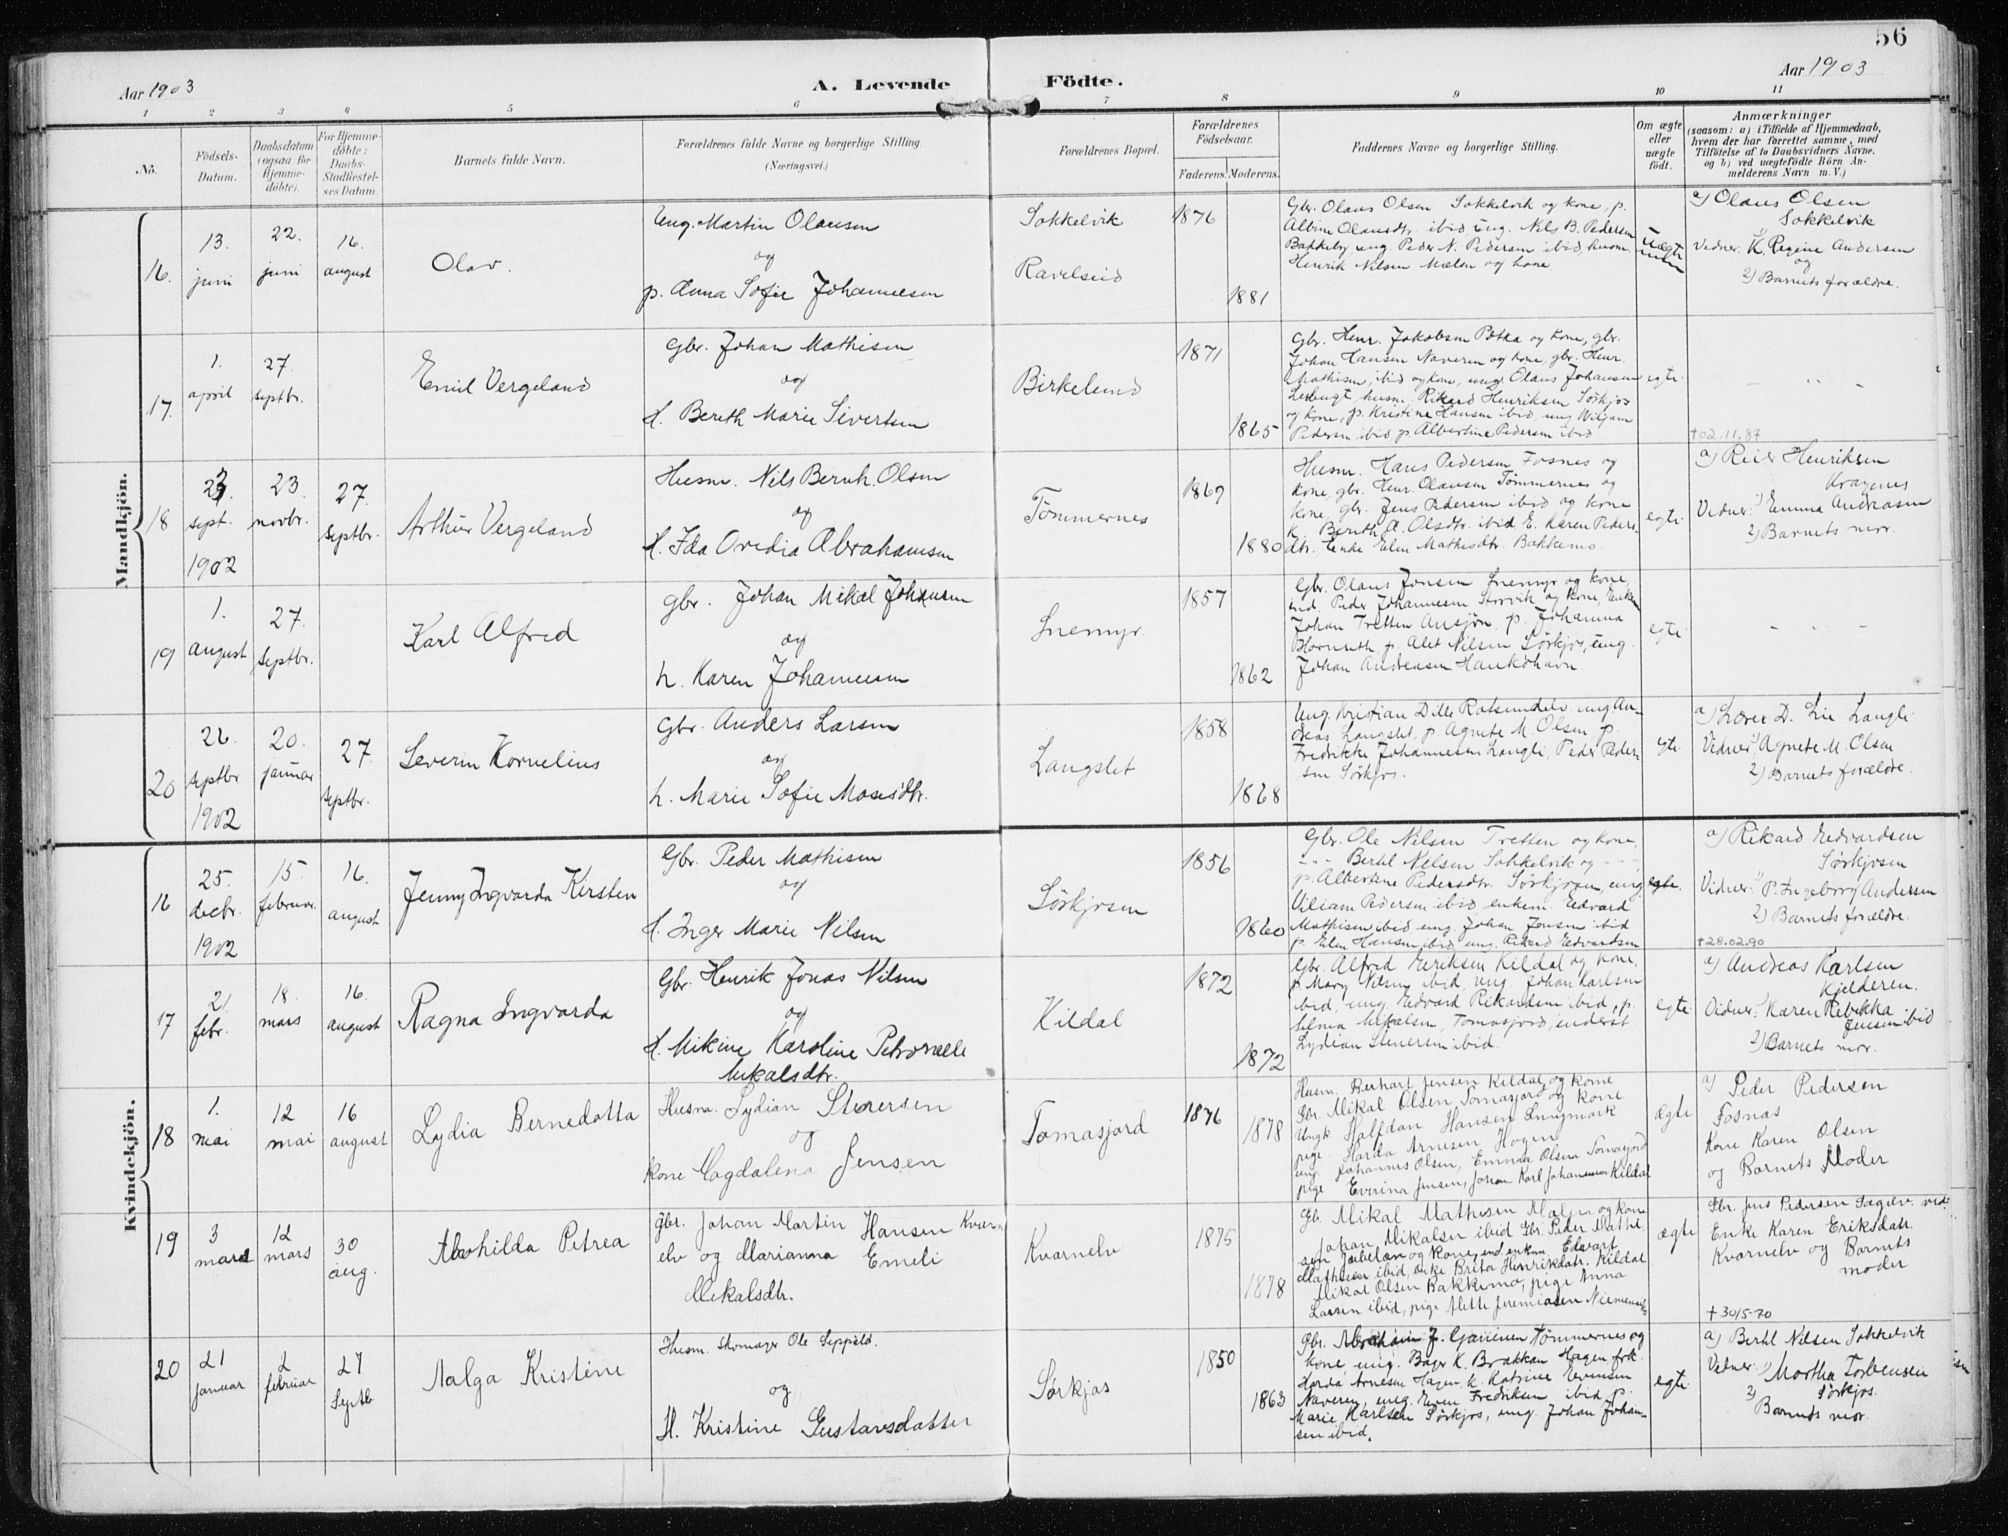 56
Aar 1903
A. Levende Födte.
Aar 1903
1 2 3 4 5 6 7 8 9 10 11
No.
Födsels-Datum.
Daabsdatum (ogsaa for Hjemme-döbte).
For Hjemme-döbte: Daabs-Stadfæstel-ses Datum.
Barnets fulde Navn.
Forældrenes fulde Navne og borgerlige Stilling.
(Næringsvei.)
Forældrenes Bopæl.
Forældrenes Födselsaar.
Faderens. Moderens.
Faddernes Navne og borgerlige Stilling.
Om ægte eller uægte födt.
Anmærkninger
(saasom: a) i Tilfælde af Hjemmedaab,
hvem der har forrettet samme, med
Tilföielse af to Daabsvidners Navne.
og b) ved uægtefödte Börn An-
melderens Navn m. V.)
Mandkjön.
16.
13. juni
22. juni
16. august
Olav.
Ung. Martin Olausen
og
p. Anna Sofie Johannesen
Sokkelvik
Ravelseid
1876
1881
Gbr. Olaus Olsen Sokkelvik og kone, p.
Albine Olausdtr. ibid, ung. Nils B. Pedersen
Bakkeby ung. Peder N. Pedersen ibid, husm.
Henrik Nilsen Mælen og kone
Uægte
a) Olaus Olsen
Sokkelvik
Vidner: 1) K. Regine Andersen
og
2) Barnets forældre.
17.
1. april
27. septbr.
Emil Vergeland
Gbr. Johan Mathisen
og
H. Bereth Marie Sivertsen
Birkelund
1871
1865
Gbr. Henr. Jakobsen Potka og kone, gbr.
Johan Hansen Naveren og kone, gbr. Henr.
Mathisen, ibid og kone, ung. Olaus Johansen
husm. Rikard Henriksen Sørkjos
og kone, p. Kristine Hansen ibid, ung Wiljam
Pedersen ibid p. Albertine Pedersen ibid
egte.
- " -
† 02.11.87
18
23. sept. 1902
23. novbr.
27. septbr.
Arthur Vergeland
Husm. Nils Bernh. Olsen
og
H. Ida Ovedia Abrahamsen
Tømmernes
1869
1880
Husm. Hans Pedersen Fosnes og
kone, gbr. Henr. Olausen Tømmernes og
kone, gbr. Jens Pedersen ibid og kone
K. Bereth A. Olsdtr. ibid E. Karen Peders
dtr. Enke Elen Mathisdtr. Bakkemo.
egte.
a) Reier Henriksen
Vidner: 1) Emma Andreasen
2) Barnets mor.
19
1. august
27. septbr.
Karl Alfred
Gbr. Johan Mikal Johansen
og
h. Karen Johannesen
Snemyr
1857
1862
Gbr. Olaus Jonsen Snemyr og kone,
ind. Peder Johannesen Storvik og kone, Enkem
Johan Tretten p. Johanna
p. Alet Nilsen Sørkjos, ung.
Johan Andreasen Haukøhavn.
egte.
- - -
20
26. septbr 1902
20. januar
27. septbr.
Severin Kornelius
Gbr. Anders Larsen
og
h. Marie Sofie Mosesdtr.
Langslet
1858
1868
Ung. Kristian Dille Rotsundelv. ung An-
dreas Langslet, p. Agnete M. Olsen, p.
Fredrikke Johannesen Langli, Peder Peder-
sen Sørkjos.
egte.
a) Lærer D. Lie Langli.
Vidner 1) Agnete M. Olsen
2) Barnets forældre.
Kvindekjön.
16
25. decbr. 1902
15. februar.
16. august
Jenny Ingvarda Kirsten
Gbr. Peder Mathisen
og
H. Inger Marie Nilsen
Sørkjosen
1856
1860
Gbr. Ole Nilsen Tretten og kone,
- " - Bertil Nilsen Sokkelvik og - " -
p. Albertine Pedersdtr. Sørkjosen, ung
Viliam Pedersen ibid, enkem. Edvard
Mathisen ibid ung. Johan Jensen ibid
p. Elen Hansen ibid, ung. Rikard Edvardsen
egte.
a) Rikard Edvardsen
Sørkjosen
Vidner: 1) P. Ingeborg Andersen
2) Barnets forældre.
† 28.02.90
17
2. febr.
18. mars
16. august
Ragna Ingvarda
Gbr. Henrik Jonas Nilsen
og
H. Mikine Karoline Petronelle
Mikalsdtr.
Kildal
1872
1872
Gbr. Alfred Eeriksen Kildal og kone,
p Mary Nilsen ibid, ung Johan Karlsen
ibid, ung. Edvard Rikardsen ibid, p.
Mikalsen, Tomasjord, inderst
Lydian Stenersen ibid.
egte
a) Andreas Karlsen
Kjelderen.
Vidner: 1) Karen Rebekka
Jensen ibid
2) Barnets mor.
18
1. mai
12 mai
16 august
Lydia Bernedotta
Husm. Lydian Stenersen
og
kone Magdalena Jensen
Tomasjord
1876
1878
Husm. Berhart Jensen Kildal og kone
Gbr. Mikal Olsen, Tomasjord og kone
Ungk Halfdan Hansen
pige. Harda Arnesen Hagen
ung. Johannes Olsen, Emma Olsen Tomasjord
pige Everina Jensen, Johan Karl Johannesen Kildal
Ægte
a) Peder Pedersen
Fosnas
Kone Karen Olsen
og Barnets Moder
19
3 mars
12 mars
30 aug.
Mathilda Petrea
Gbr. Johan Martin Hansen Kvarn-
elv og Marianna Emeli
Mikalsdtr.
Kvarnelv
1875
1878
Gb. Mikal Mathisen Malen og kone
Johan Mikalsen ibid Gbr. Peder Mathi
sen og kone, enkem. Edvart
Mathisen ibid, enke Brita Henriksdtr. Kildal
Mikal Olsen Bakkemo, pige Anna
Larsen ibid, pige Alette Jeremiasen
ægte
Gbr. Jens Pedersen Sagelv. vid:
Enke Karen Eriksdatr.
Kvarnelv og Barnets
moder
† 30/5-70
20
21 januar
2 februar
27 Septb
Aalga Kristine
Husm. Skomager Ole Seppälä.
og
H. Kristine Gustavsdatter
Sørkjos
1850
1863
Gbr. Abraham J. Tømmernes og
kone ung. Bager K. Brakkan Hagen frk.
Harda Arnesen Hagen, k. Katrine Evensen
Naveren, ung. Even Fredriksen ibid P.
Marie Karlsen Sørkjos, ung. Johan Johan-
sen ibid.
egte.
a) Bertil Nilsen Sokkelvik
Vidner: 1) Martha Torbensen
Sørkjos.
2) Barnets mor.